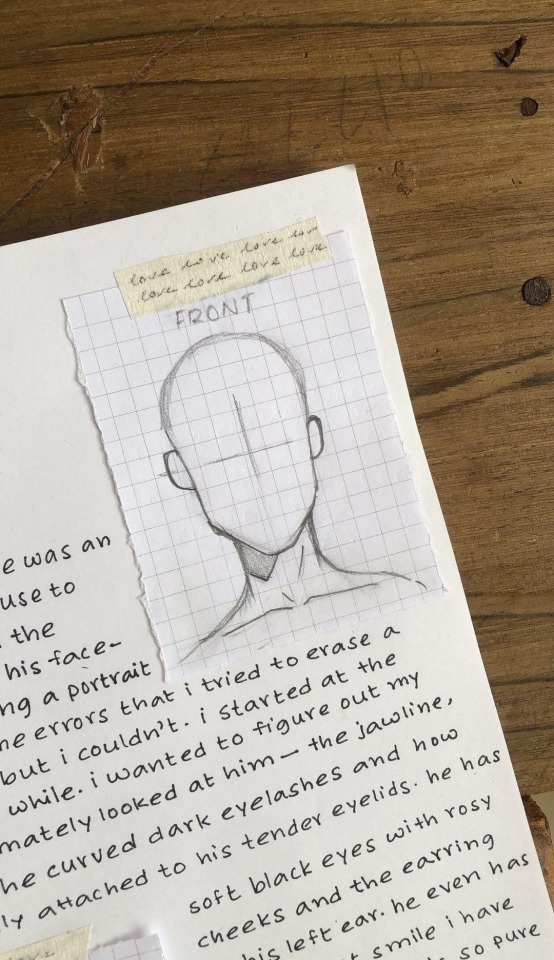 love love love love
love love love love love
FRONT
e was an
use to
the
his face-
ng a portrait
ne errors that i tried to erase a
but i couldn't. i started at the
while. i wanted to figure out my
mately looked at him — the jawline,
he curved dark eyelashes and how
ly attached to his tender eyelids. he has
soft black eyes with rosy
cheeks and the earring
his left ear. he even has
t smile i have
so pure